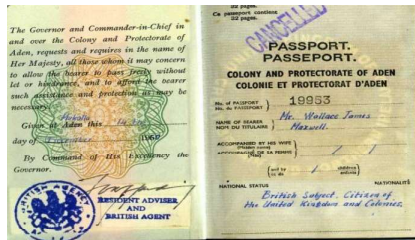 The Governor and Commander-in-Chief in
and over the Colony and Protectorate of
Aden, requests and requires in the name of
Her Majesty, all those whom it may concern
to allow the bearer to pass freely without
let or hindrance, and to afford the bearer
such assistance and protection as may be
necessary.
Given at Aden this
day of
By Command of His Excellency the
Governor.
BRITISH AGENCY
RESIDENT ADVISER
AND
BRITISH AGENT
22 pages.
Ce passeport contient
22 pages.
CANCELLED
PASSPORT.
PASSEPORT.
COLONY AND PROTECTORATE OF ADEN
COLONIE ET PROTECTORAT D'ADEN
No. of PASSPORT
No. du PASSEPORT
19953
NAME OF BEARER
NOM DU TITULAIRE
Mr. Wallace James
Maxwell.
ACCOMPANIED BY HIS WIFE
(Maiden name)
ACCOMPAGNE DE SA FEMME
and by
et de
children
enfants
NATIONAL STATUS
NATIONALITÉ
British Subject, Citizen of
the United Kingdom and Colonies.